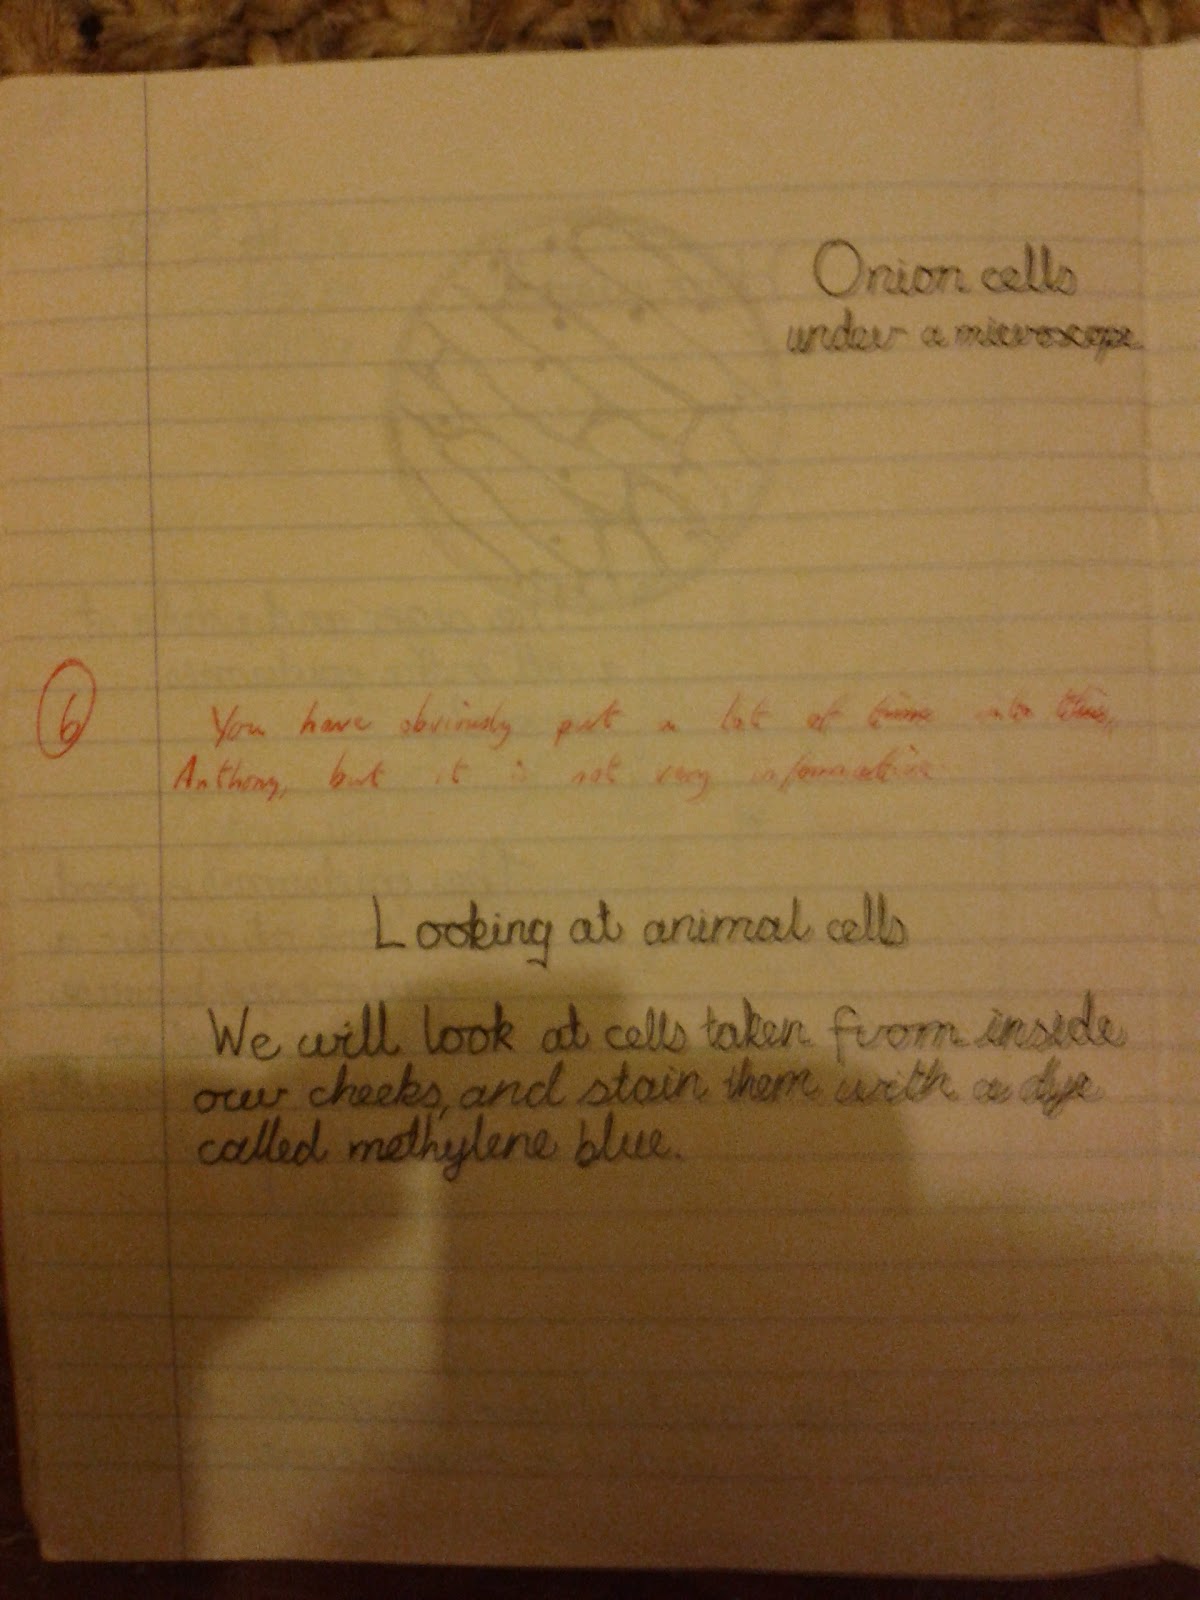 Onion cells
under a microscope
6
You have obviously put a lot of time into this,
Anthony, but it is not very informative.
Looking at animal cells
We will look at cells taken from inside
our cheeks, and stain them with a dye
called methylene blue.